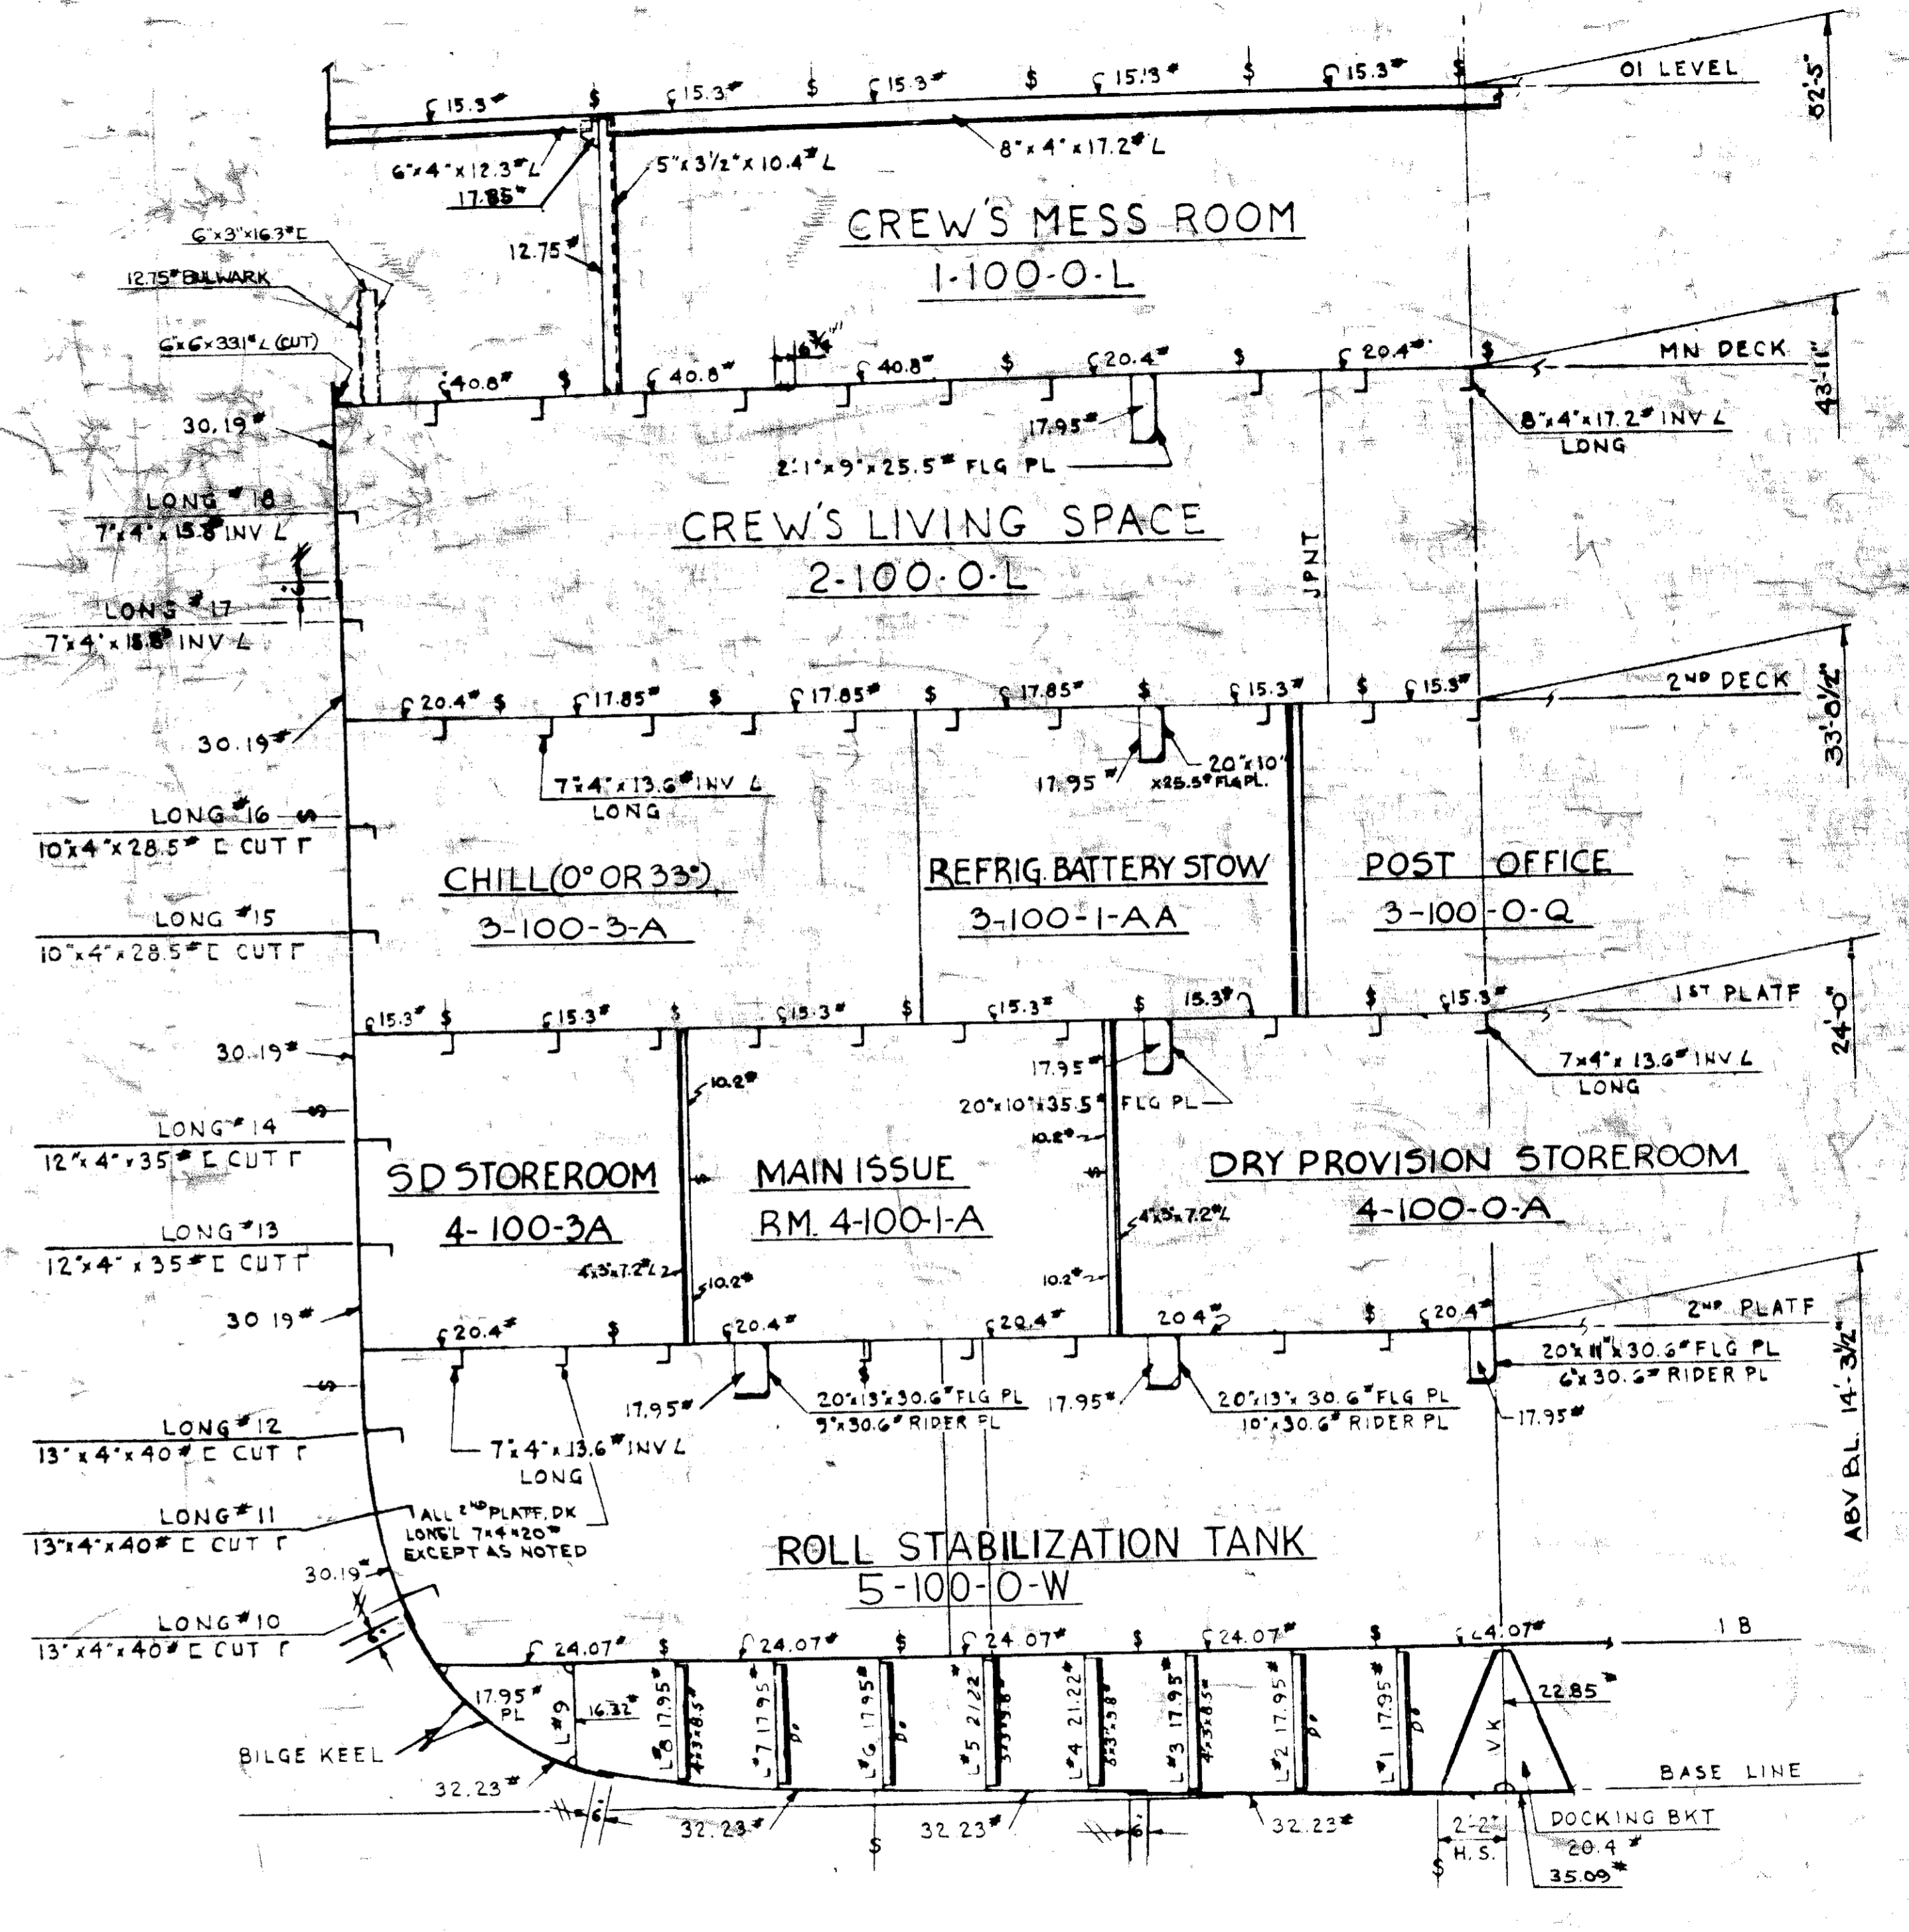 15.3# $ 15.3# $ 15.3# $ 15.3# $ 15.3# $ 01 LEVEL
52'-5"
6"x4"x12.3# L
17.85#
5"x3 1/2"x10.4# L
8"x4"x17.2# L
CREW'S MESS ROOM
1-100-0-L
12.75#
6"x3"x16.3# [
12.75# BULWARK
6"x6"x33.1# L (CUT)
40.8# $ 40.8# 40.8# $ 20.4# $ 20.4# $ MN DECK
43'-11"
30.19#
17.95#
2'-1"x9"x25.5# FLG PL
8"x4"x17.2# INV L
LONG
LONG #18
7"x4"x15.8# INV L
CREW'S LIVING SPACE
2-100-0-L
JPNT
LONG #17
7"x4"x15.8# INV L
20.4# $ 17.85# $ 17.85# $ 17.85# $ 15.3# $ 15.3# 2ND DECK
33'-8 1/2"
30.19#
7"x4"x13.6# INV L
LONG
17.95#
20"x10"
x25.5# FLG PL.
LONG #16
10"x4"x28.5# [ CUT Γ
CHILL (0° OR 33°)
3-100-3-A
REFRIG. BATTERY STOW
3-100-1-AA
POST OFFICE
3-100-0-Q
LONG #15
10"x4"x28.5# [ CUT Γ
15.3# $ 15.3# $ 15.3# $ 15.3# $ 15.3# $ 15.3# 1ST PLATF
24'-0"
30.19#
10.2#
17.95#
20"x10"x35.5# FLG PL
7"x4"x13.6# INV L
LONG
10.2#
LONG #14
12"x4"x35# [ CUT Γ
SD STOREROOM
4-100-3A
MAIN ISSUE
RM. 4-100-1-A
DRY PROVISION STOREROOM
4-100-0-A
4"x3"x7.2# L
LONG #13
12"x4"x35# [ CUT Γ
4"x3"x7.2# L
10.2#
10.2#
30.19#
20.4# $ 20.4# 20.4# 20.4# $ 20.4# 2ND PLATF
ABV B.L. 14'-3 1/2"
17.95#
20"x13"x30.6# FLG PL
9"x30.6# RIDER PL
17.95#
20"x13"x30.6# FLG PL
10"x30.6# RIDER PL
20"x11"x30.6# FLG PL
6"x30.6# RIDER PL
17.95#
LONG #12
13"x4"x40# [ CUT Γ
7"x4"x13.6# INV L
LONG
LONG #11
13"x4"x40# [ CUT Γ
ALL 2ND PLATF. DK
LONG'L 7x4x20#
EXCEPT AS NOTED
30.19#
ROLL STABILIZATION TANK
5-100-0-W
LONG #10
13"x4"x40# [ CUT Γ
6"
24.07# $ 24.07# $ 24.07# $ 24.07# $ 24.07# I B
17.95#
PL
L#9
16.32#
L#8 17.95#
4"x3"x8.5#
L#7 17.95#
DO
L#6 17.95#
DO
L#5 21.22#
L#4 21.22#
L#3 17.95#
4"x3"x8.5#
L#2 17.95#
DO
L#1 17.95#
DO
V K
22.85#
BILGE KEEL
32.23#
6"
32.23#
$
32.23#
6"
32.23#
BASE LINE
2'-2"
H.S.
$
DOCKING BKT
20.4#
35.09#